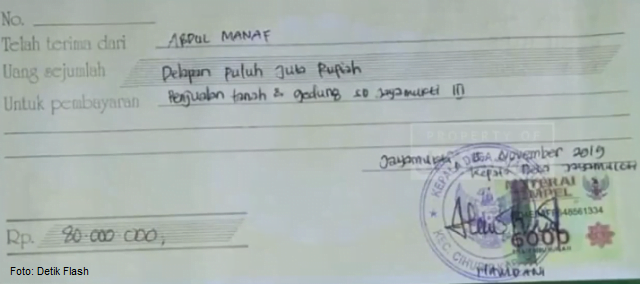 No.
Telah terima dari ABDUL MANAF
Uang sejumlah Delapan puluh Juta Rupiah
Untuk pembayaran Penjualan tanah & gedung SD Jayamukti III
PROPERTY OF
Jayamukti, November 2019
Kepala Desa Jayamukti
KEPALA DESA
METERAI
TEMPEL
648561334
6000
KEC. CIHURIP KAB.
Rp. 80.000.000,
Foto: Detik Flash